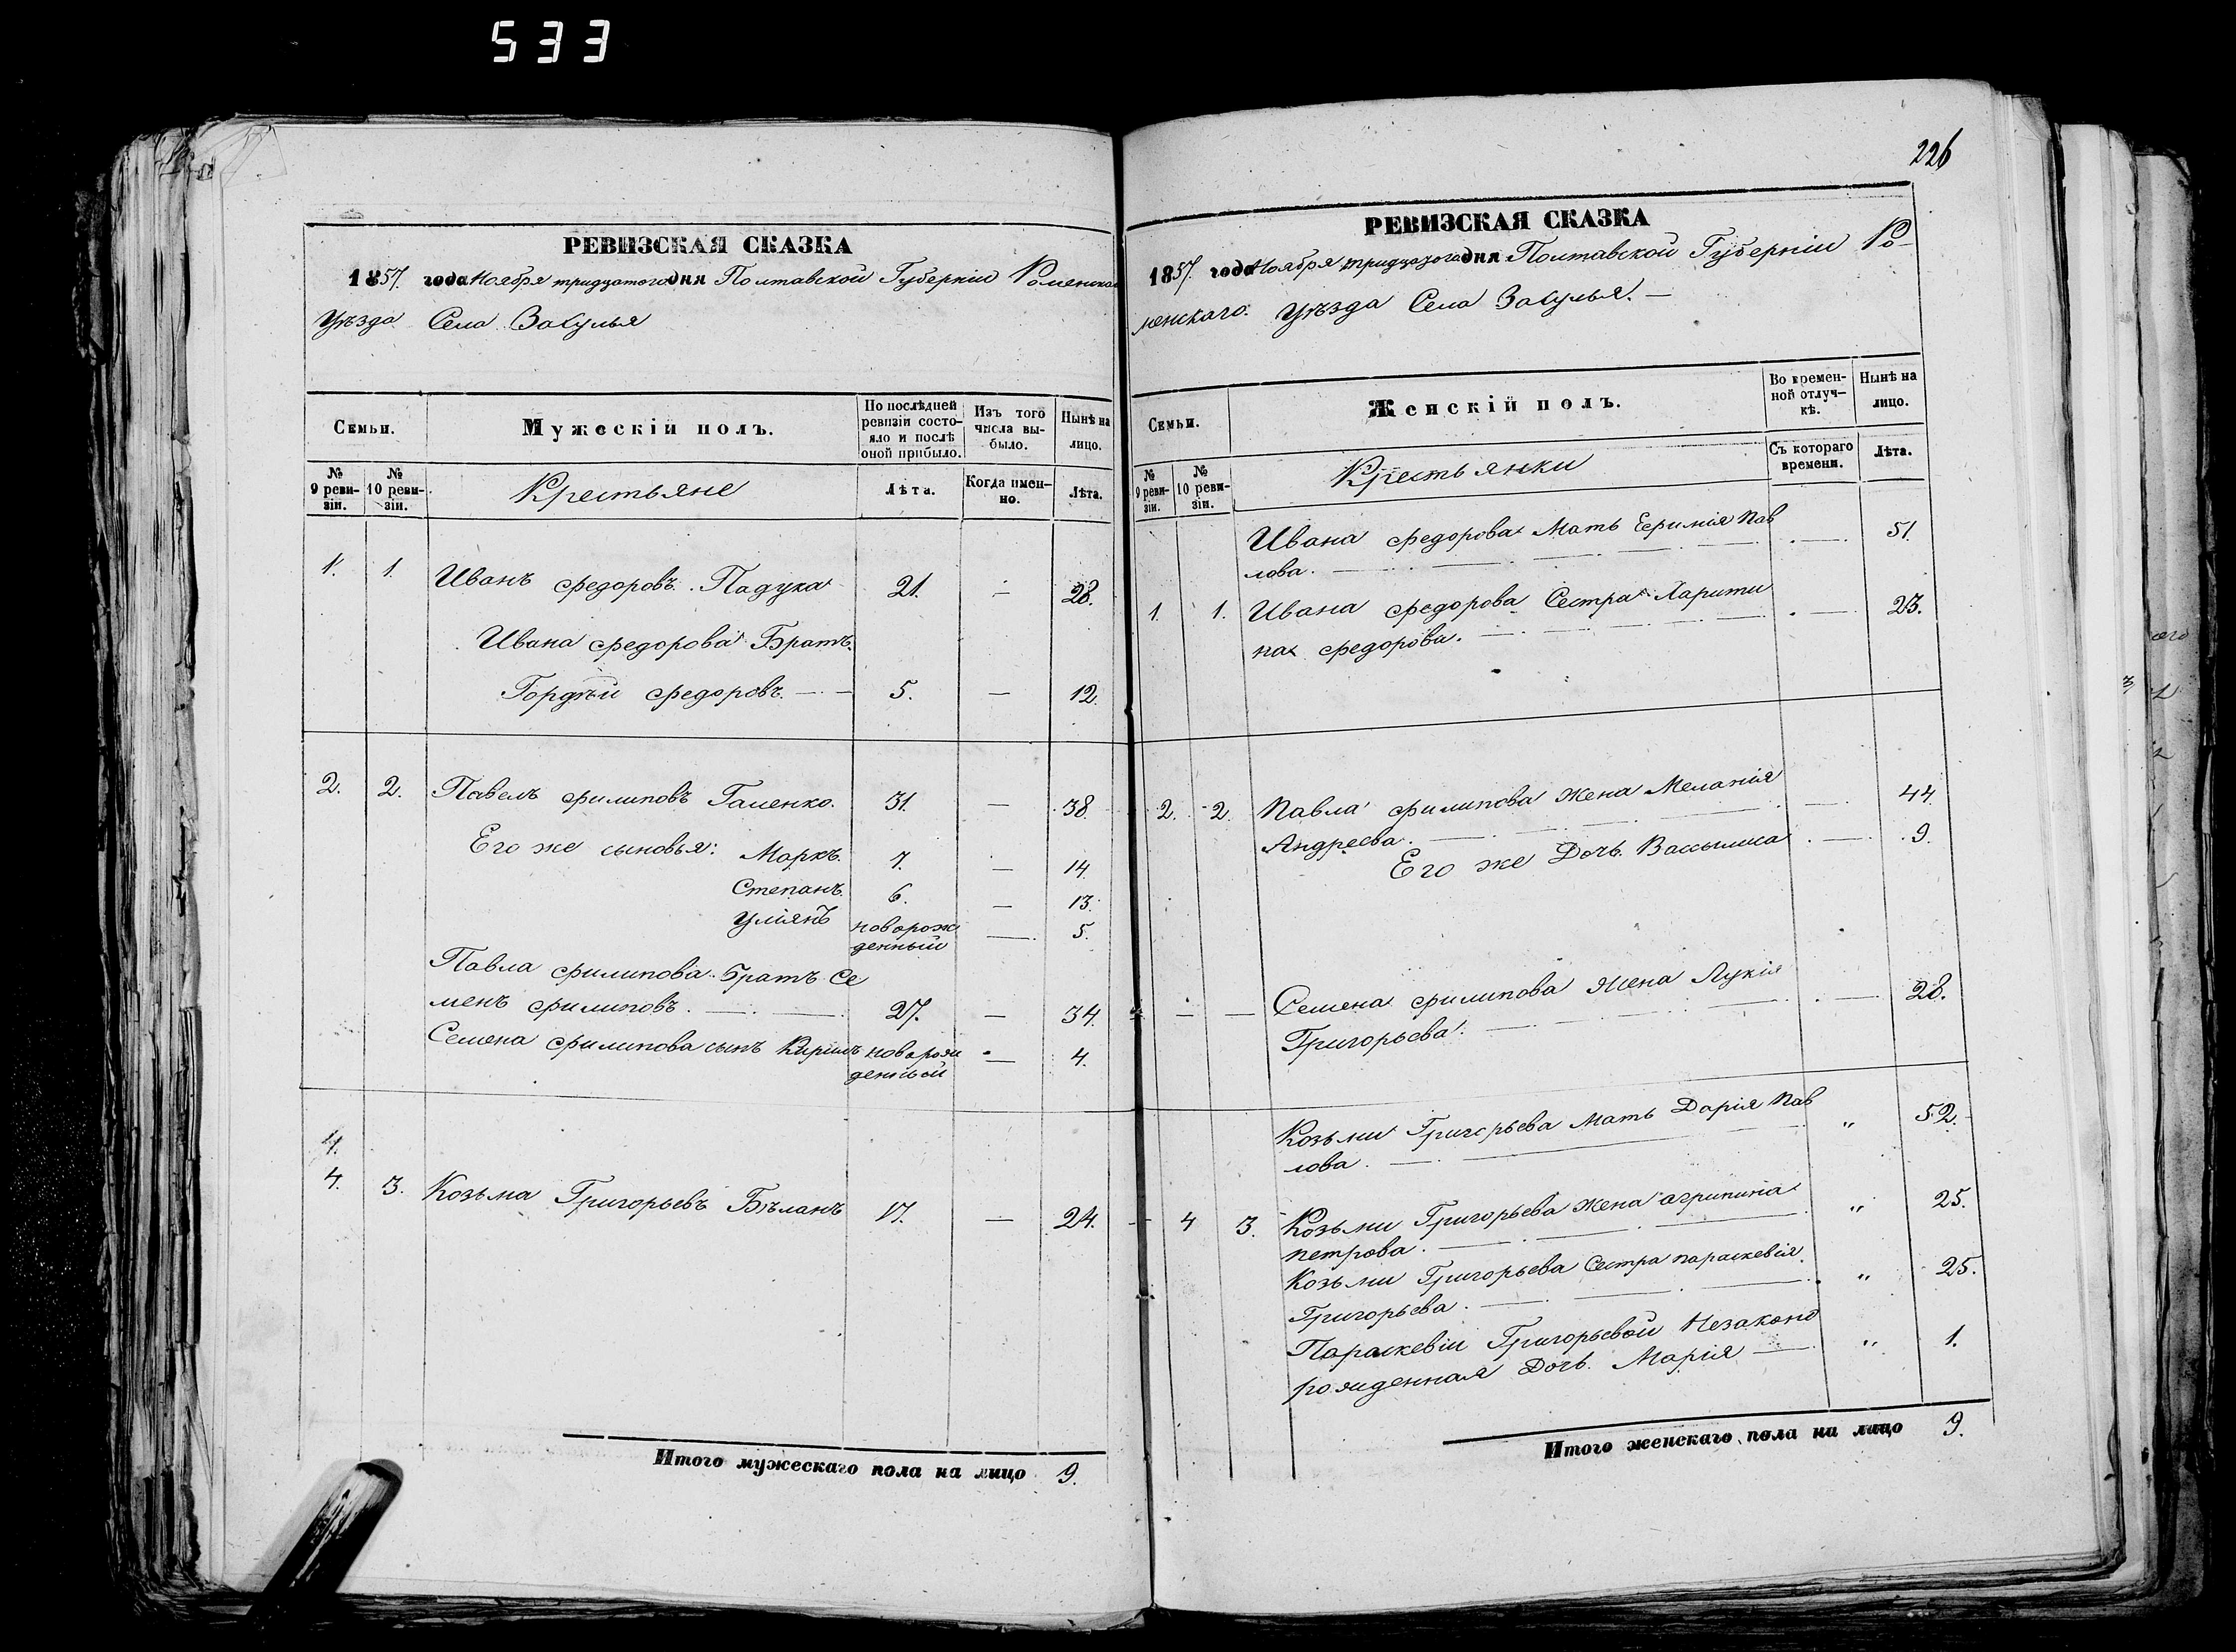 533
РЕВИЗСКАЯ СКАЗКА
1857. года Ноября тридцатого дня Полтавской Губерніи Роменскаго
Уѣзда Села Засулья
Семьи.
Мужескій полъ.
По послѣдней ревизіи состояло и послѣ оной прибыло.
Изъ того числа выбыло.
Нынѣ на лицо.
№ 9 ревизіи.
№ 10 ревизіи.
Крестьяне
Лѣта.
Когда именно.
Лѣта.
1. 1. Иванъ Федоровъ Падука 21. — 28.
Ивана Федорова Братъ
Гордѣй Федоровъ. — 5. — 12.
2. 2. Павелъ Филиповъ Гаменко. 31. — 38.
Его же сыновья: Маркъ. 7. — 14
Степанъ. 6. — 13.
Уліянъ новорож — 5.
денный
Павла Филипова Братъ Се
менъ Филиповъ. — 27. — 34.
Семена Филипова сынъ Кирилъ новорож — 4.
денный
4.
4. 3. Козьма Григорьевъ Бѣланъ 17. — 24.
Итого мужескаго пола на лицо 9.
226
РЕВИЗСКАЯ СКАЗКА
1857. года Ноября тридцатого дня Полтавской Губерніи Ро-
менскаго. Уѣзда Села Засулья. —
Семьи.
Женскій полъ.
Во временной отлучкѣ.
Нынѣ на лицо.
№ 9 ревизіи.
№ 10 ревизіи.
Крестьянки
Съ котораго времени.
Лѣта.
Ивана Федорова Мать Ефимія Пав — 51.
лова.
1. 1. Ивана Федорова Сестра Харити — 23.
на Федорова.
2. 2. Павла Филипова Жена Меланія — 44.
Андреева.
Его же Дочь Вассылиса — 9.
— — Семена Филипова Жена Лукія — 28.
Григорьева.
Козьми Григорьева Мать Дарія Пав „ 52.
лова.
4 3. Козьми Григорьева Жена агрипина „ 25.
петрова.
Козьми Григорьева Сестра параскевія „ 25.
Григорьева.
Параскевіи Григорьевой Незаконо „ 1.
рожденная Дочь Марія —
Итого женскаго пола на лицо 9.